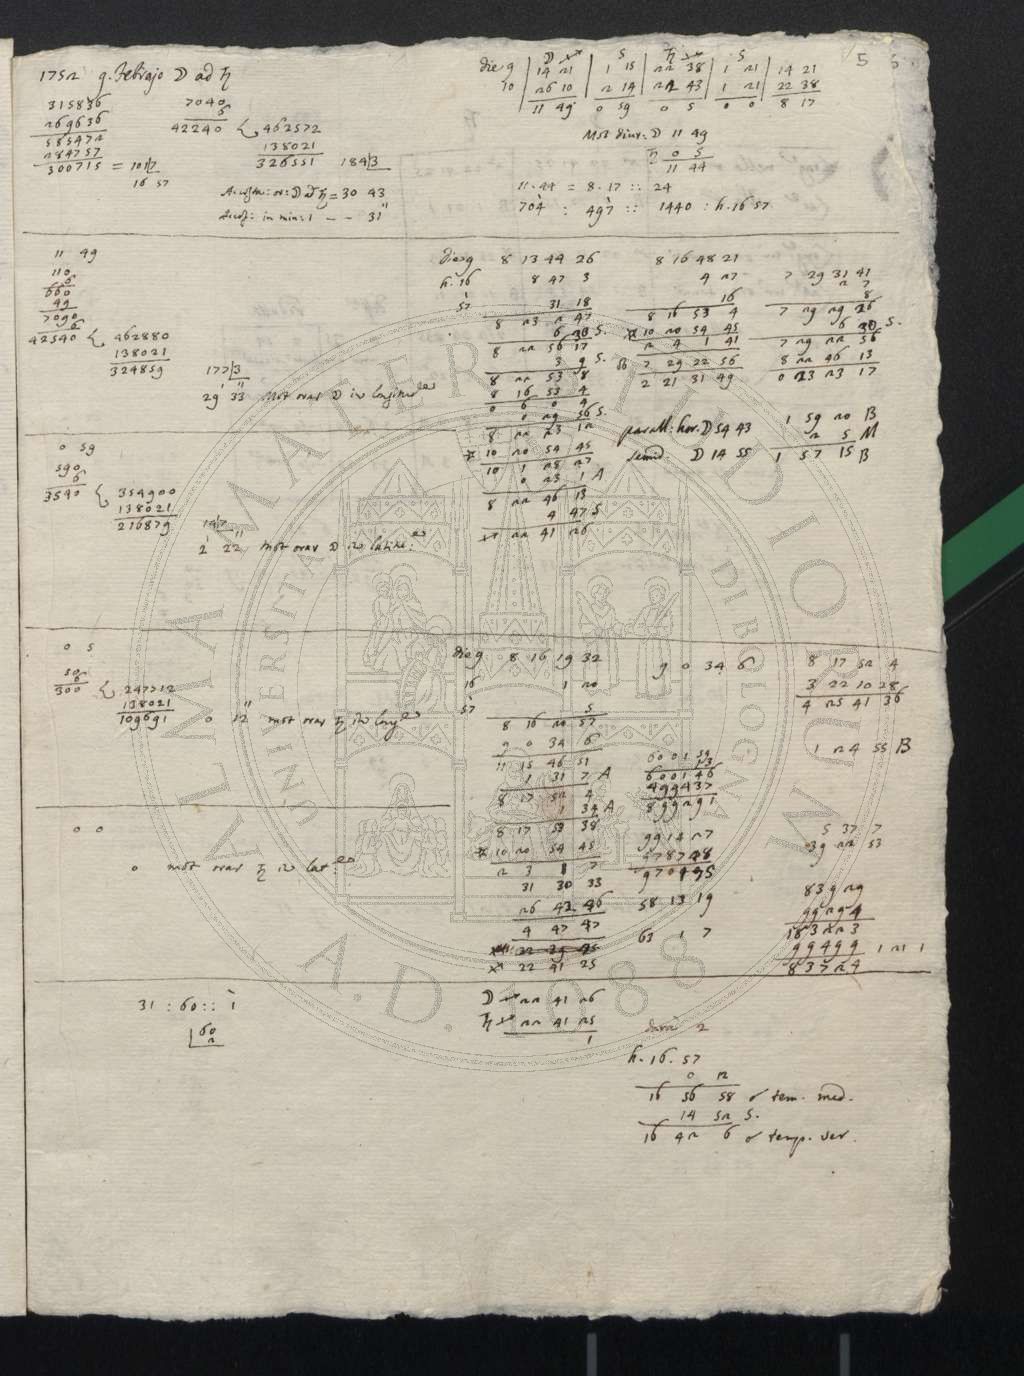 1752 9. Febrajo ☽ ad ♄
315836 7040
269636 6
585472 42240 462572
284757 138021
300715 = 101|7 326551 184|3
16 57
☽ ad ♄ = 30 43
in min: 1 -- 31"
die 9 | 14 21 | 1 15 | 22 38 | 1 21 | 14 21
10 | 26 10 | 2 14 | 22 43 | 1 21 | 22 38
11 49 | 0 59 | 0 5 | 0 0 | 8 17
Mot diur: ☽ 11 49
♄ 0 5
11 44
11.44 = 8.17 :: 24
704 : 497 :: 1440 : h.16 57
11 49
110
6
660
49
7090
6
42540 462880
138021
324859 177|3
29' 33" Mot orar ☽ in longitud
0 59
590
6
3540 354900
138021
216879 14|7
2' 22" mot orar ☽ in latitud
die 9 8 13 44 26
h. 16 8 47 3
57 31 18
8 23 2 47
6 30 S.
8 22 56 17
3 9 S.
8 22 53 8
8 16 53 4
0 6 0 4
0 29 56 S.
8 22 23 12
10 20 54 45
10 1 28 27
0 23 1 A
8 22 46 13
4 47 S
22 41 26
8 16 48 21
4 27
16
8 16 53 4
10 20 54 45
2 4 1 41
7 29 22 56
2 21 31 49
7 29 31 41
2 7
8
7 29 29 26
6 30 S.
7 29 22 56
8 22 46 13
0 23 23 17
parall: hor. ☽ 54 43
semid: ☽ 14 55
1 59 20 B
2 5 M
1 57 15 B
0 5
50
6
300 247712
138021
109691 0 12" mot orar ♄ in long
0 0
0 mot orar ♄ in lat:
die 9 8 16 19 32
16 1 20
57 5
8 16 20 57
9 0 34 6
11 15 46 51
1 31 7 A
8 17 52 4
1 34 A
8 17 53 38
10 20 54 45
2 3 1 7
31 30 33
26 43 46
4 47 47
22 41 25
9 0 34 6
60 01 59
13
6001 46
499437
899291
9914 27
978728
970495
58 13 19
63 1 7
8 17 52 4
3 22 10 28
4 25 41 36
1 24 55 B
5 37 7
39 22 53
839 29
99294
183223
99499 1 21 1
83724
31 : 60 :: 1
60
2
☽ 22 41 26
♄ 22 41 25
1
2
h. 16. 57
0 2
16 56 58 ☌ tem. med.
14 52 S.
16 42 6 ☌ temp. ver.
ALMA MATER STUDIORUM
UNIVERSITA DI BOLOGNA
A.D. 1088